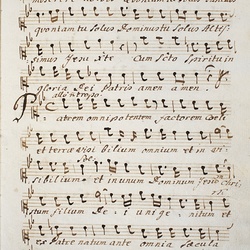 quoniam tu Solus Dominus tu Solus Altis
simus Jesu Cum Scto Spiritu in
gloria Dei Patris amen amen.
Patrem omnipotentem factorem coeli
et terrae bilium omnium et in
sibilium et in unum Dominum Jesum Chris
tum filium Dei unigenitum et
ex Patre natum ante omnia saecula